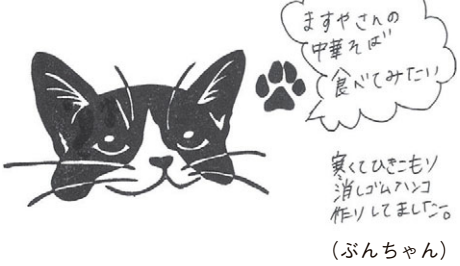 ますやさんの
中華そば
食べてみたい
寒くてひきこもり
消しゴムハンコ
作りしてました。
(ぶんちゃん)